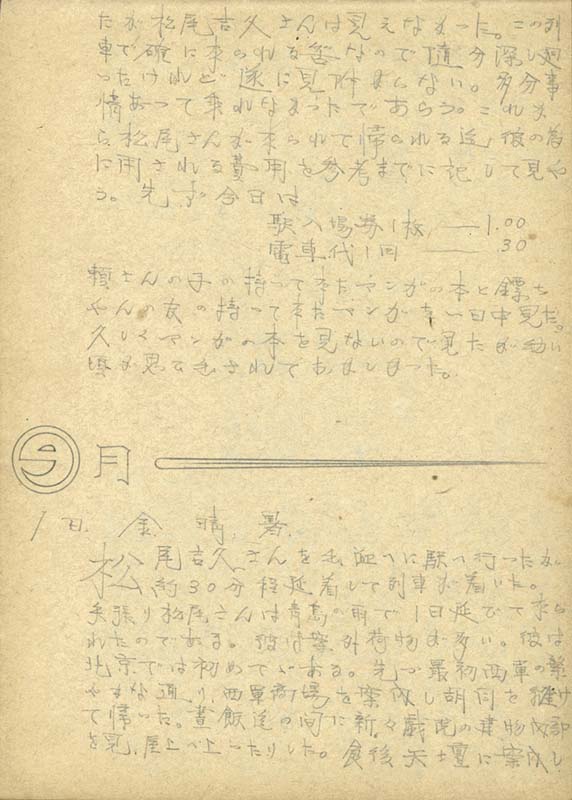 たが松尾吉久さんは見えなかった。この列
車で確に来られる筈なので随分探し廻
ったけれど遂に見附からない。多分事
情あって乗れなかったであらう。これか
ら松尾さんが来られて帰られる迄、彼の為
に用される費用を参考までに記して見や
う。先ず今日は
駅入場券1枚 ── 1.00
電車代1回 ── .30
さんの子の持って来たマンガの本と
やんの友の持って来たマンガを一日中見た。
久しくマンガの本を見ないので見たが幼い
頃が思ひ出されておかしかった。
9月
1日. 金. 晴. 暑.
松尾吉久さんを出迎へに駅へ行ったが
約30分程延着して列車が着いた。
矢張り松尾さんは青島の雨で1日延びて来ら
れたのである。彼は案外荷物が多い。彼は
北京では初めてゞある。先づ最初西単の繁
やかな通り、西単商場を案内し胡同を抜け
て帰った。昼飯迄の間に新々戯院の建物内部
を見、屋上へ上ったりした。食後天壇に案内し